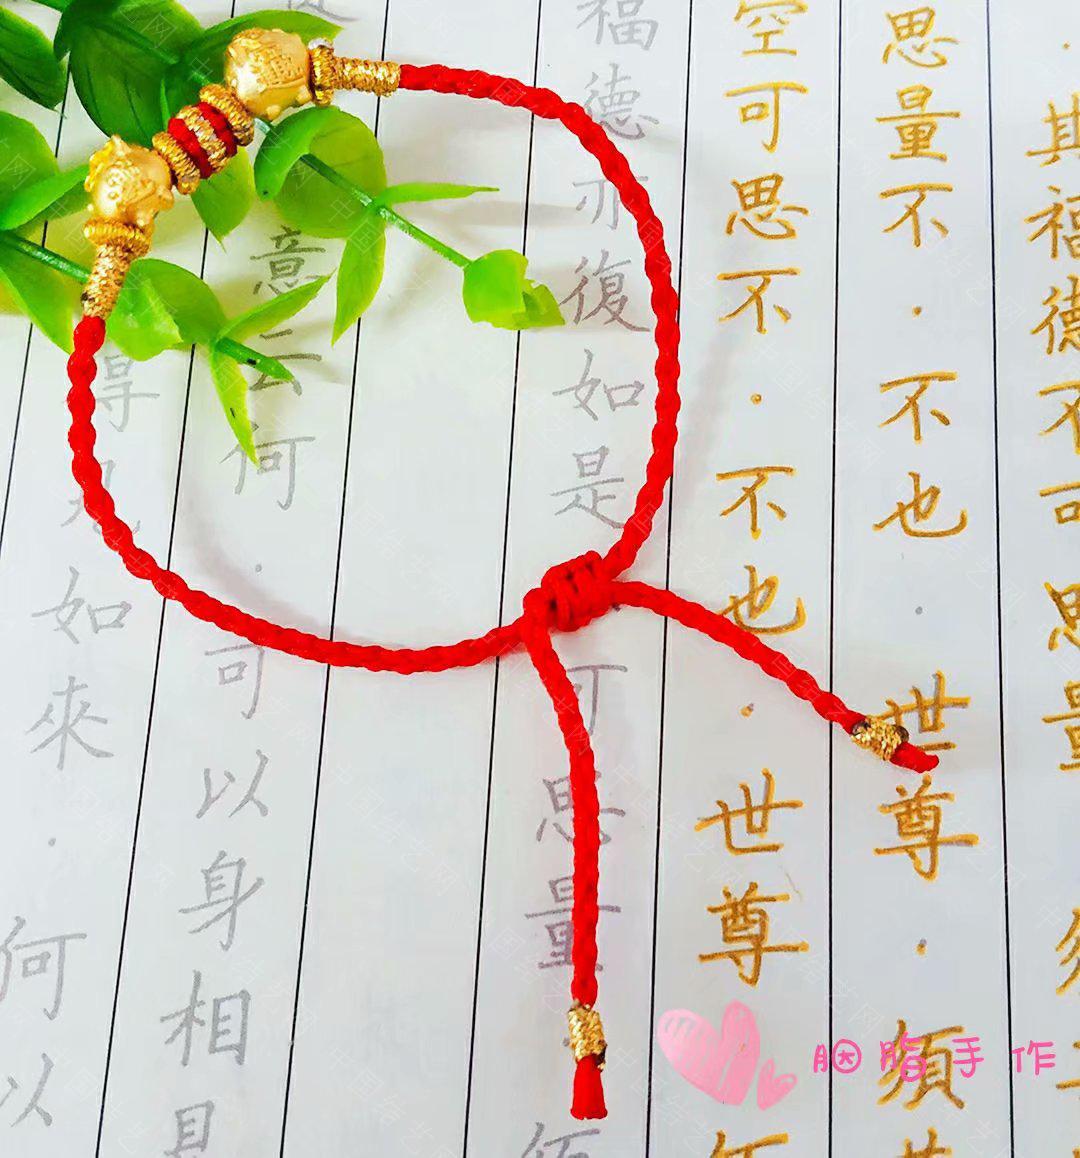 其福德不可思量
思量不·不也·世尊·須
空可思不·不也·世尊
福德亦復如是可思量
意云何·可以身相見
得見如來·何以
胭脂手作